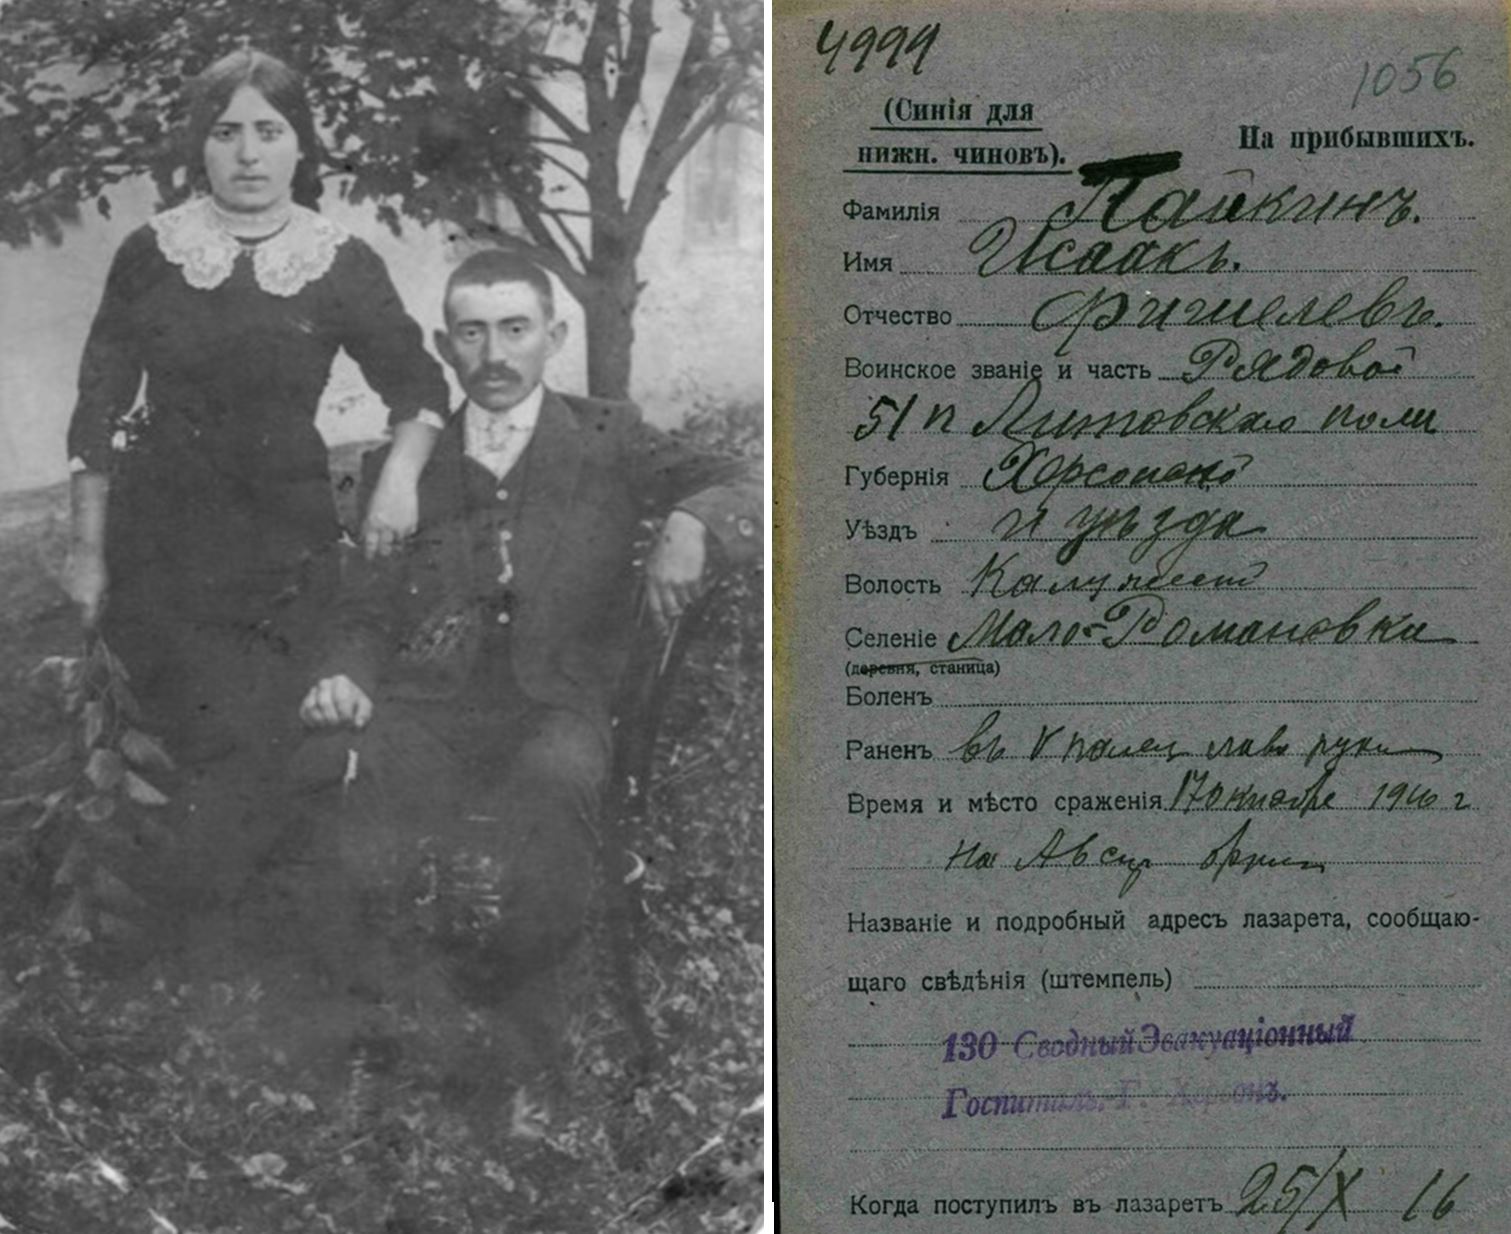 4994
1056
(Синія для
нижн. чиновъ).
На прибывшихъ.
Фамилія Пайкинъ.
Имя Исаакъ.
Отчество Фишелевъ.
Воинское званіе и часть Рядовой
51 п Литовскаго полк
Губернія Херсонской
Уѣздъ и уѣзда
Волость
Селеніе Мало-Романовка
(деревня, станица)
Боленъ
Раненъ въ V палец лѣв руки
Время и мѣсто сраженія 17 Октября 1916 г
На Австр фрон
Названіе и подробный адресъ лазарета, сообщаю-
щаго свѣдѣнія (штемпель)
130 Сводный Эвакуаціонный
Госпиталь. Г. Херсонъ.
Когда поступилъ въ лазаретъ 25/X 16